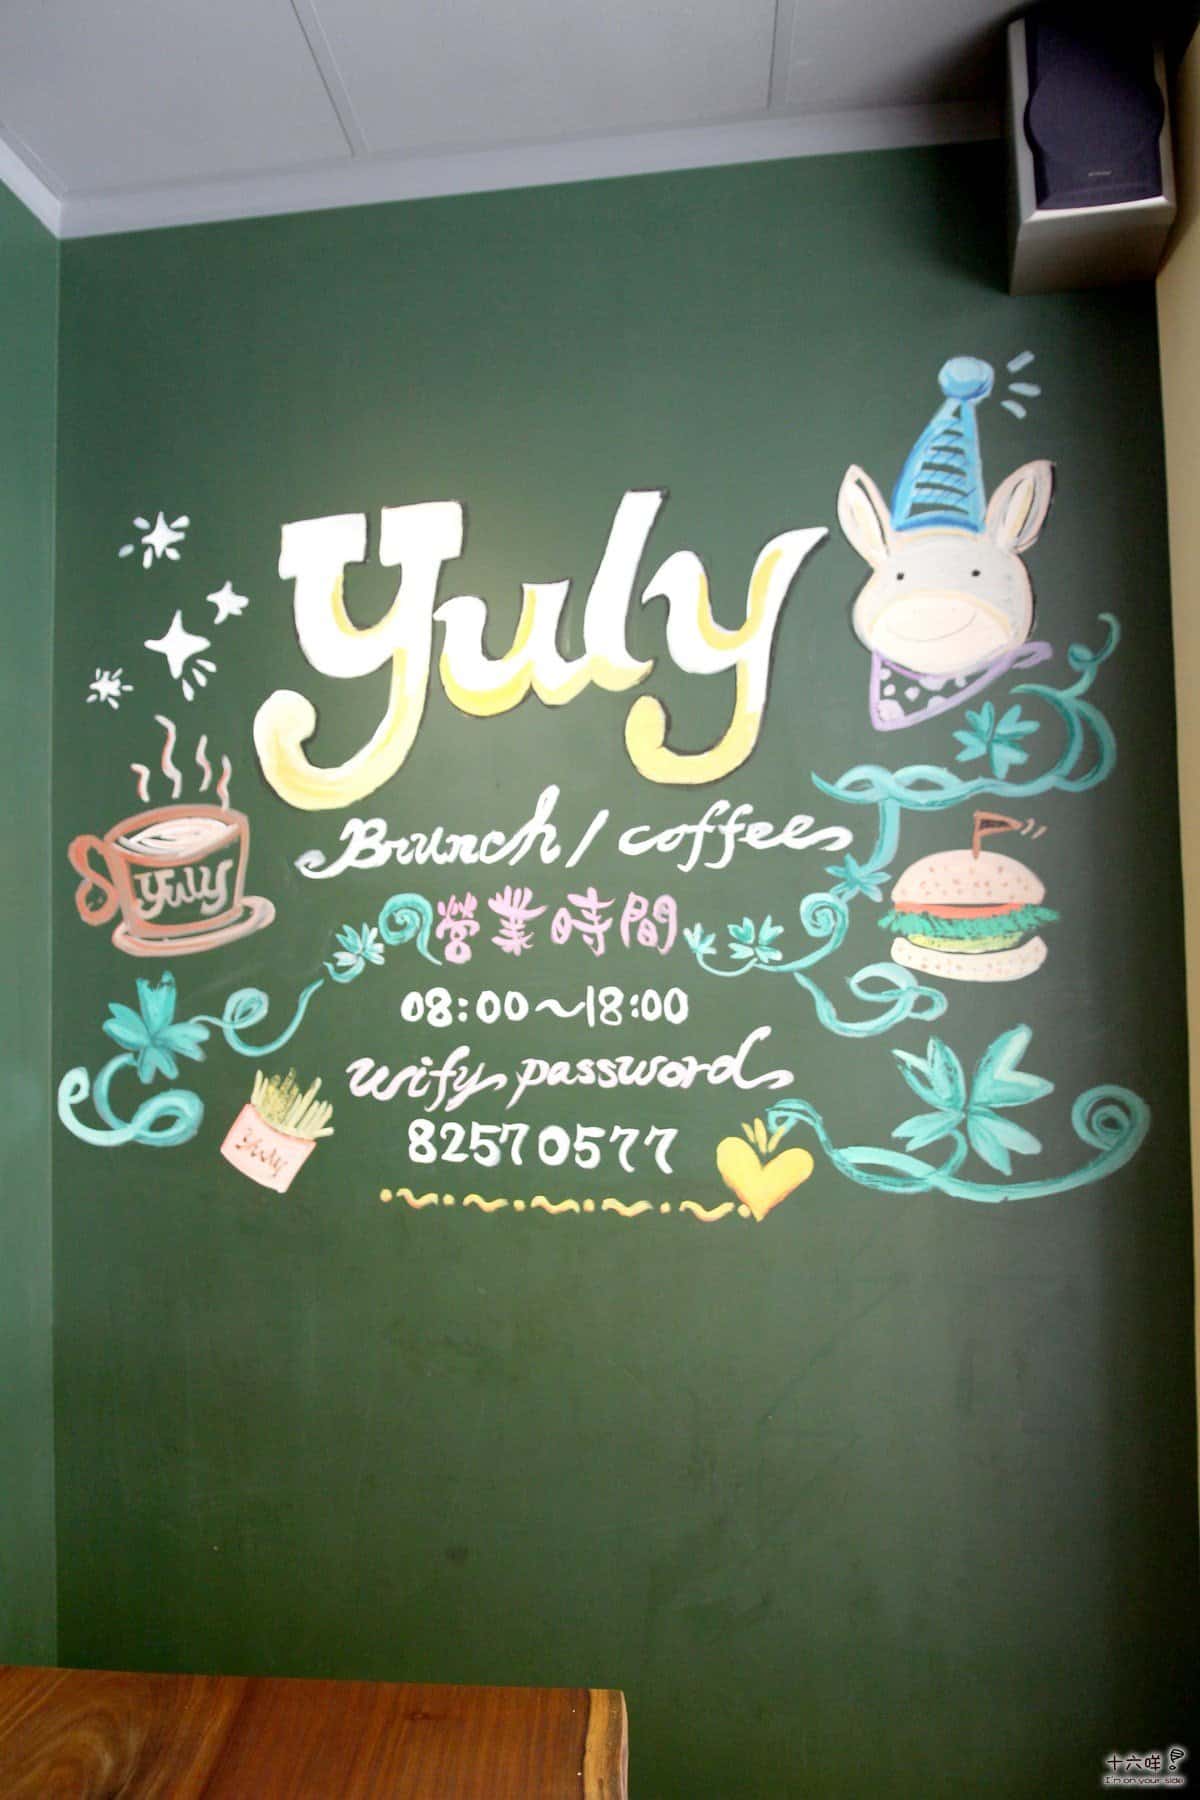 yuly
Brunch / coffee
營業時間
08:00~18:00
wify password
82570577
yuly
yuly
十六咩
I'm on your side